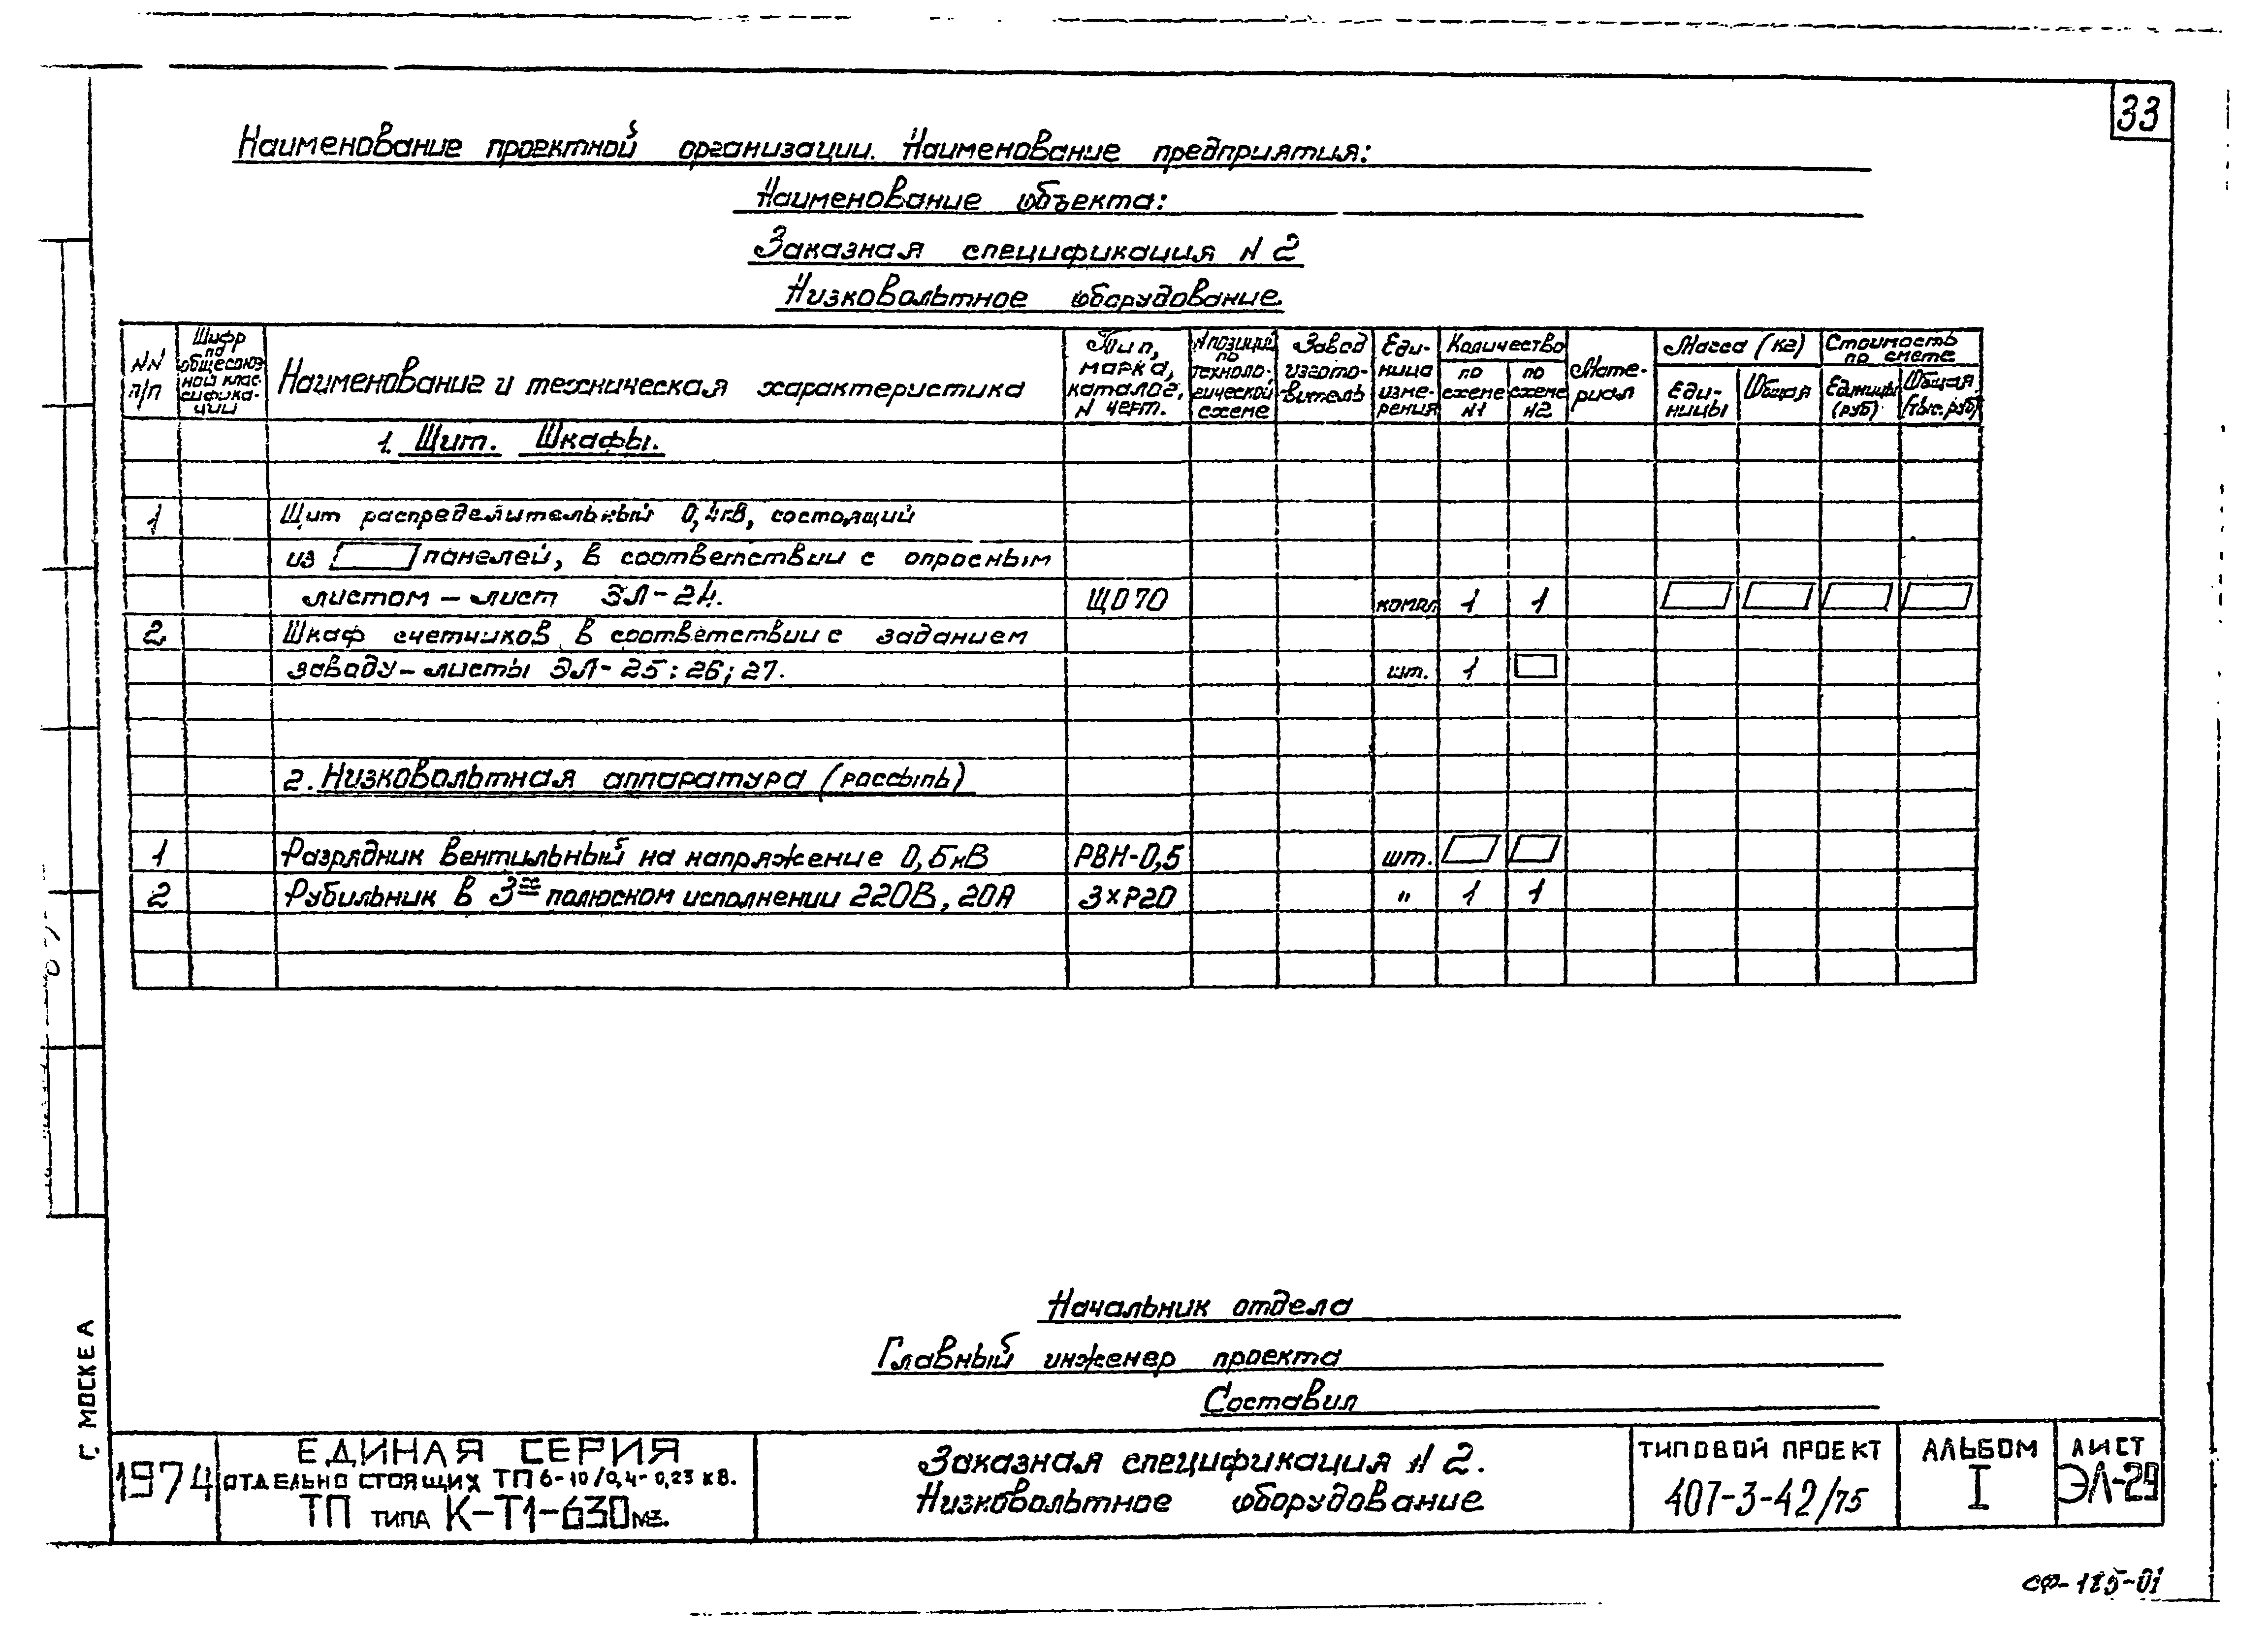 33
Наименование проектной организации. Наименование предприятия:
Наименование объекта:
Заказная спецификация N 2
Низковольтное оборудование.
NN п/п
Шифр по общесоюзной классификации
Наименование и техническая характеристика
Тип, марка, каталог, N черт.
N позиции по технологической схеме
Завод изготовитель
Единица измерения
Количество
по схеме N1
по схеме N2
Материал
Масса (кг)
Единицы
Общая
Стоимость по смете
Единицы (руб)
Общая (тыс. руб)
1. Щит. Шкафы.
1 Щит распределительный 0,4кВ, состоящий
из панелей, в соответствии с опросным
листом – лист ЭЛ-24. ЩО70 компл. 1 1
2 Шкаф счетчиков в соответствии с заданием
заводу – листы ЭЛ-25; 26; 27. шт. 1
2. Низковольтная аппаратура (россыпь)
1 Разрядник вентильный на напряжение 0,5кВ РВН-0,5 шт.
2 Рубильник в 3х полюсном исполнении 220В, 20А 3×Р20 " 1 1
Начальник отдела
Главный инженер проекта
Составил
Г. МОСКВА
1974
ЕДИНАЯ СЕРИЯ
ОТДЕЛЬНО СТОЯЩИХ ТП 6-10/0,4-0,23 кВ.
ТП ТИПА К-Т1-630М3.
Заказная спецификация N 2.
Низковольтное оборудование
ТИПОВОЙ ПРОЕКТ
407-3-42/75
АЛЬБОМ
I
ЛИСТ
ЭЛ-29
СФ-185-01